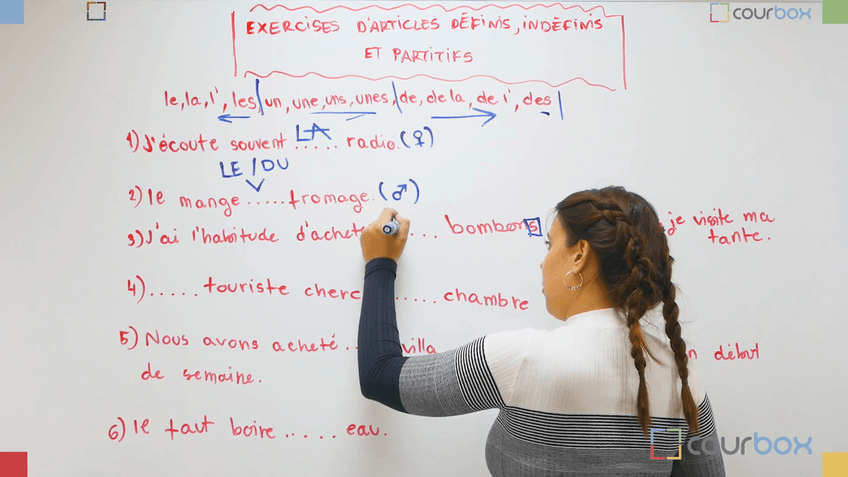 courbox
EXERCISES D'ARTICLES DÉFINIS, INDÉFINIS
ET PARTITIFS
le, la, l', les, un, une, uns, unes, de, de la, de l', des
1) J'écoute souvent LA ..... radio. (♀)
LE / DU
2) Je mange ..... fromage. (♂)
3) J'ai l'habitude d'achete ... bombons je visite ma
tante.
4) ..... touriste cherc ..... chambre
5) Nous avons acheté .. villa n début
de semaine.
6) Il faut boire ..... eau.
courbox